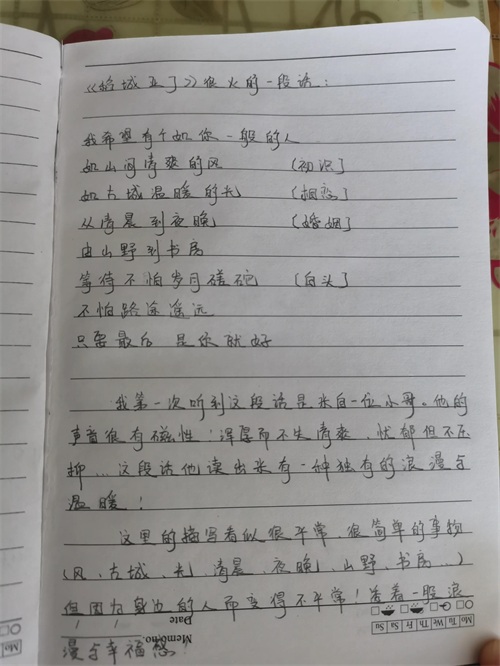 《稻城亚丁》很火的一段话：
我希望有个如你一般的人
如山间清爽的风 （初识）
如古城温暖的光 （相恋）
从清晨到夜晚 （婚姻）
由山野到书房
等待不怕岁月磋砣 （白头）
不怕路途遥远
只要最后 是你就好
我第一次听到这段话是来自一位小哥。他的
声音很有磁性：浑厚而不失清爽、忧郁但不压
抑…这段话他读出来有一种独有的浪漫与
温暖！
这里的描写看似很平常、很简单的事物
（风、古城、光、清晨、夜晚、山野、书房…）
但因为身边的人而变得不平常！有着一股浪
漫与幸福感！
Memo no
Date
Mo Tu We Th Fr Sa Su